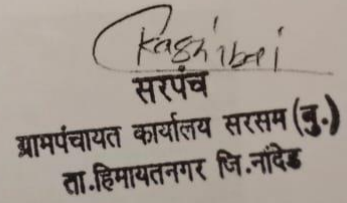 Kashibai
सरपंच
ग्रामपंचायत कार्यालय सरसम (बु.)
ता.हिमायतनगर जि.नांदेड